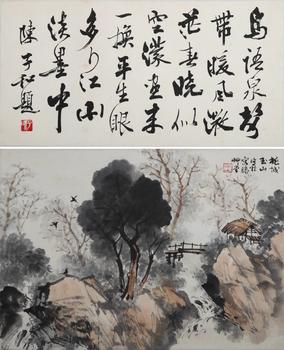 鳥語泉聲
帶暖風微
茫春曉似
空濛畫來
一換平生眼
多少江山
淡墨中
陳子毅題
玉山